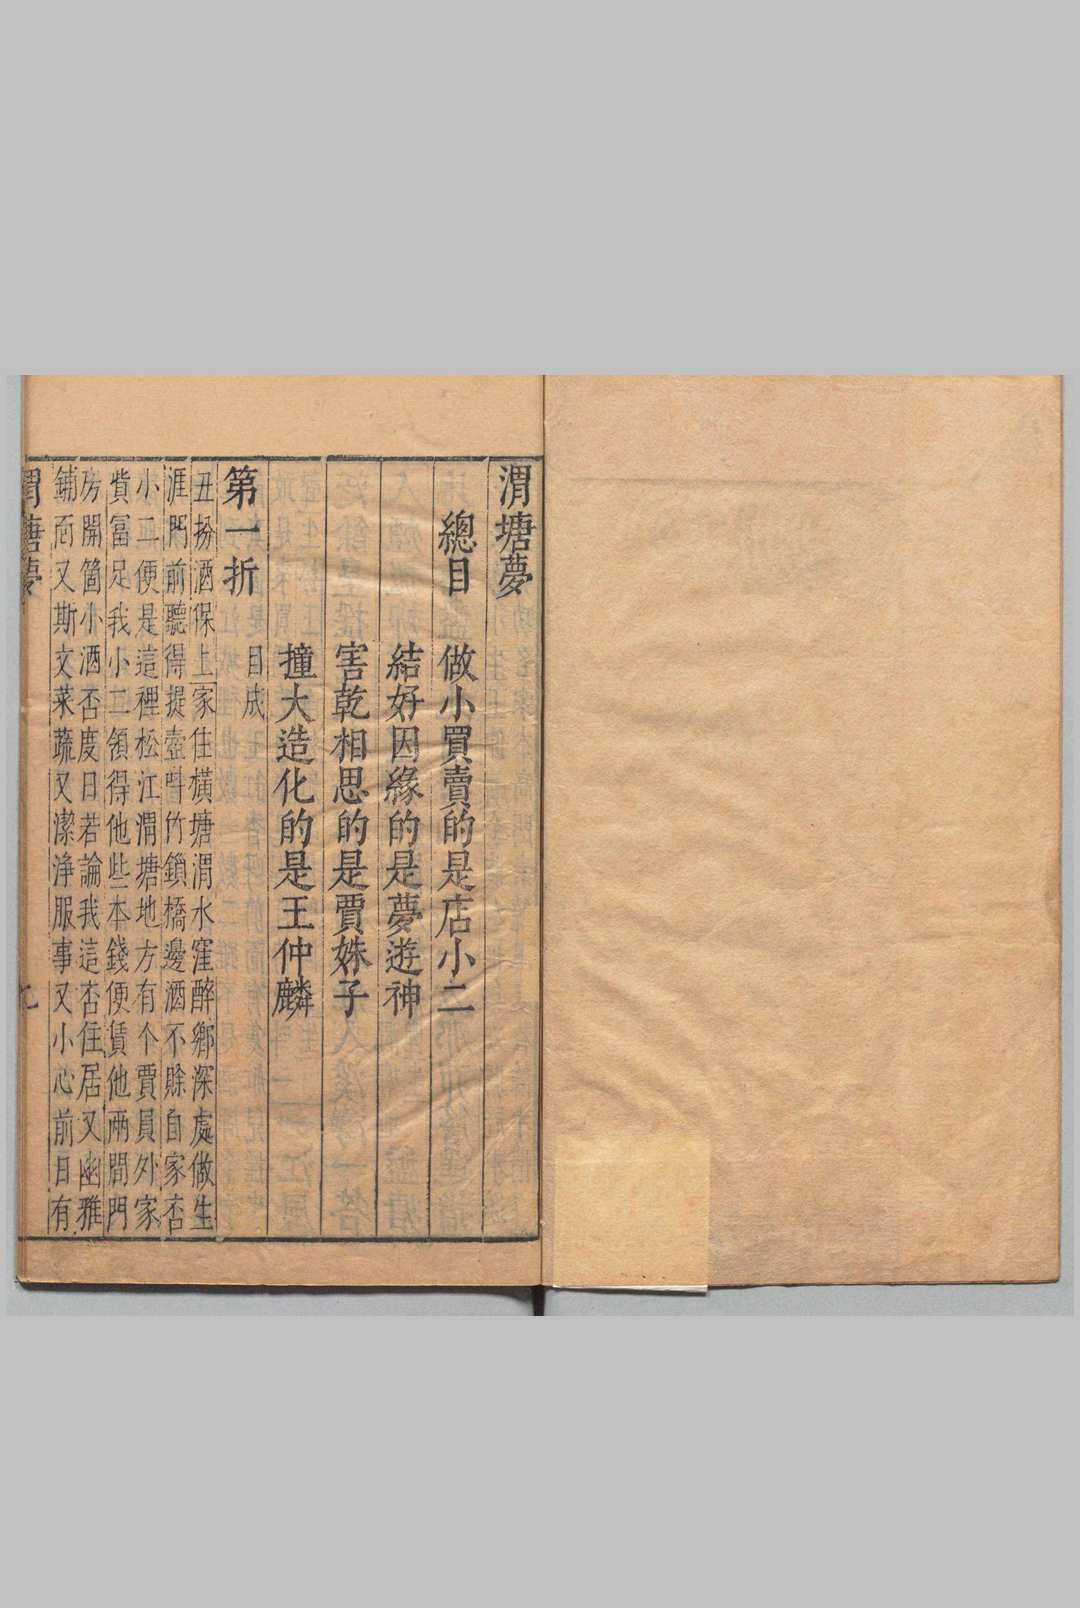 渭塘夢
總目　做小買賣的是店小二
結好因緣的是夢遊神
害乾相思的是賈姝子
撞大造化的是王仲麟
第一折　目成
丑扮酒保上家住橫塘渭水窪醉鄉深處做生
涯門前聽得提壺呌竹鎖橋邊酒不賖自家店
小二便是這裡松江渭塘地方有个賈員外家
貲富足我小二領得他些本錢便賃他兩間門
房開箇小酒店度日若論我這店住居又幽雅
鋪面又斯文菜蔬又潔淨服事又小心前日有
渭塘夢